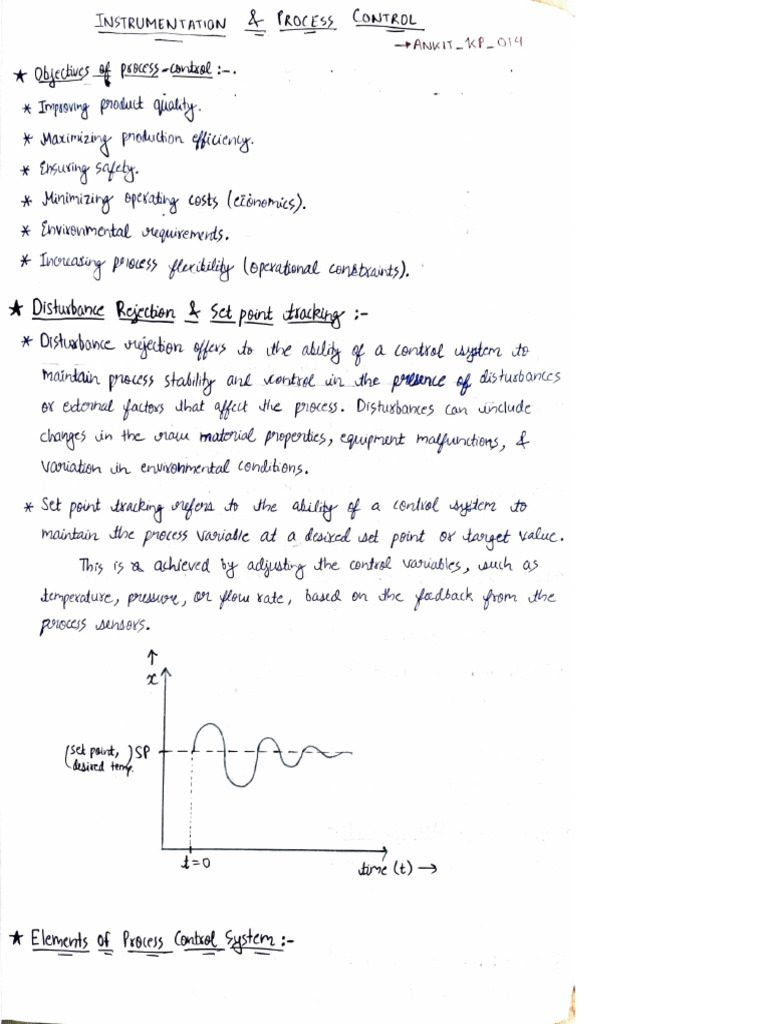 INSTRUMENTATION & PROCESS CONTROL
→ANKIT_KP_014
★ Objectives of process-control:-.
* Improving product quality.
* Maximizing production efficiency.
* Ensuring safety.
* Minimizing operating costs (economics).
* Environmental requirements.
* Increasing process flexibility (operational constraints).
★ Disturbance Rejection & Set point tracking :-
* Disturbance rejection offers to the ability of a control system to
maintain process stability and control in the presence of disturbances
or external factors that affect the process. Disturbances can include
changes in the raw material properties, equipment malfunctions, &
variation in environmental conditions.
* Set point tracking refers to the ability of a control system to
maintain the process variable at a desired set point or target value.
This is achieved by adjusting the control variables, such as
temperature, pressure, or flow rate, based on the feedback from the
process sensors.
↑
x
(set point, desired temp.) SP
t=0
time (t) →
★ Elements of Process Control System:-